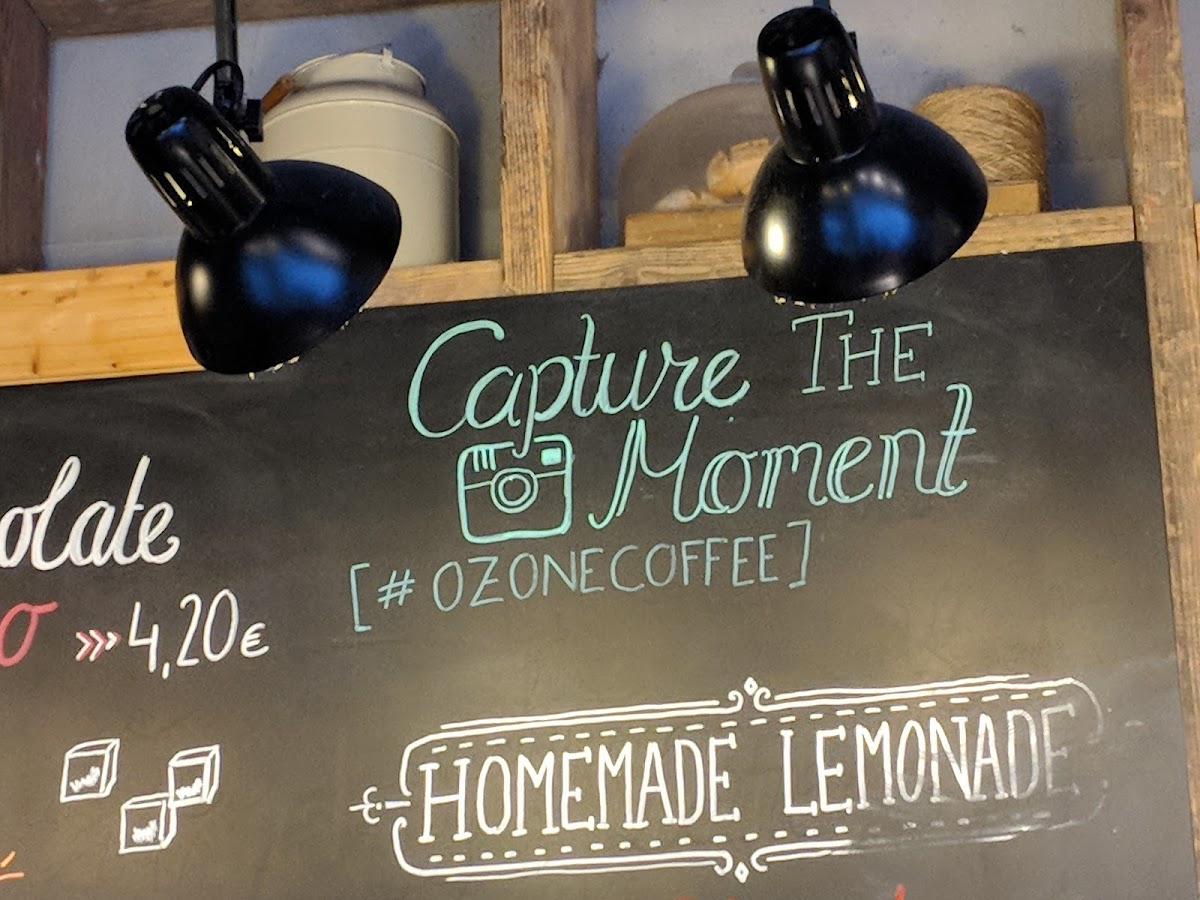 Capture THE
Moment
[#OZONECOFFEE]
4,20€
HOMEMADE LEMONADE